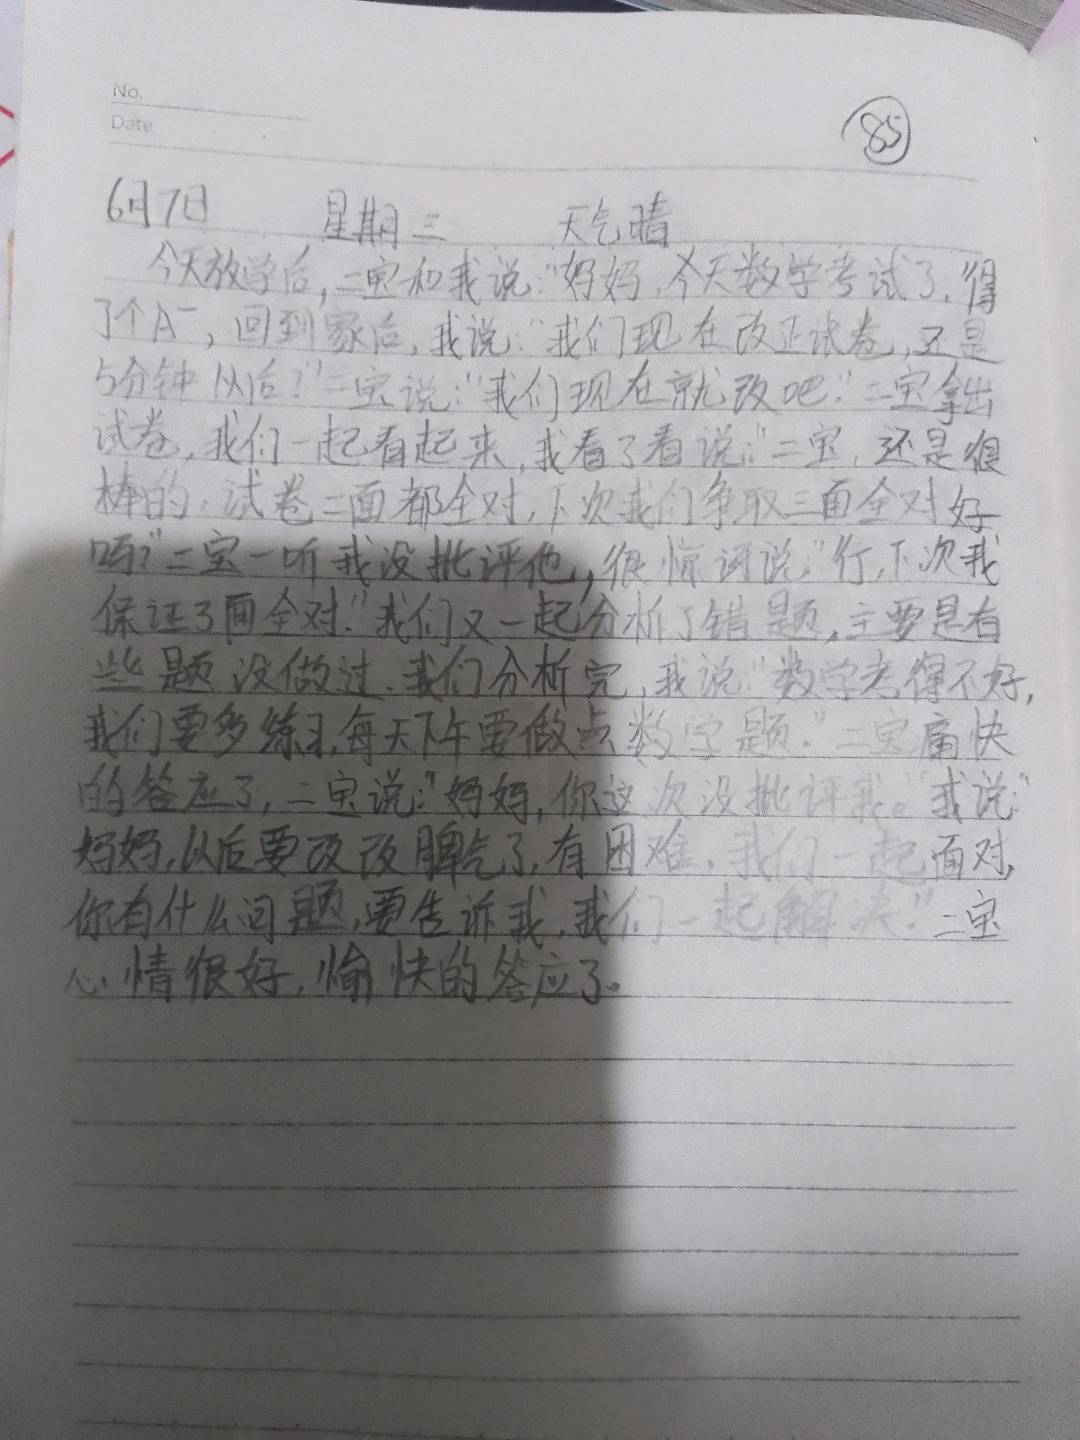 No.
Date
85
6月7日 星期三 天气晴
今天放学后,二宝和我说:"妈妈,今天数学考试了,得
了个A⁻,回到家后,我说:"我们现在改正试卷,还是
5分钟以后?"二宝说:"我们现在就改吧."二宝拿出
试卷,我们一起看起来,我看了看说:"二宝,还是很
棒的,试卷二面都全对,下次我们争取三面全对好
吗?"二宝一听我没批评他,很惊讶说:"行,下次我
保证3面全对."我们又一起分析了错题,主要是有
些题没做过.我们分析完,我说:"数学考得不好,
我们要多练习,每天下午要做点数学题."二宝痛快
的答应了,二宝说:"妈妈,你这次没批评我。"我说:"
妈妈,以后要改改脾气了,有困难,我们一起面对,
你有什么问题,要告诉我,我们一起解决."二宝
心情很好,愉快的答应了。